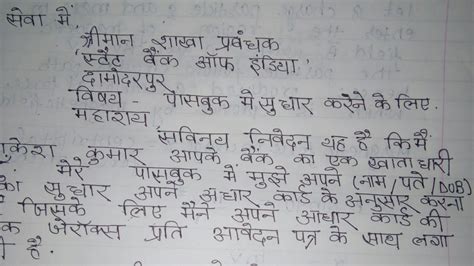 सेवा में,
श्रीमान शाखा प्रबंधक
'स्टेट बैंक ऑफ इंडिया'
दामोदरपुर
विषय - पासबुक मे सुधार करने के लिए.
महाशय,
सविनय निवेदन यह है कि मैं
केश कुमार आपके बैंक का एक खाताधारी
मेरे पासबुक में मुझे अपने (नाम/पते/DOB)
का सुधार अपने अधार कार्ड के अनुसार करना
जिसके लिए मैंने अपने आधार कार्ड की
क जेरॉक्स प्रति आवेदन पत्र के साथ लगा
है.